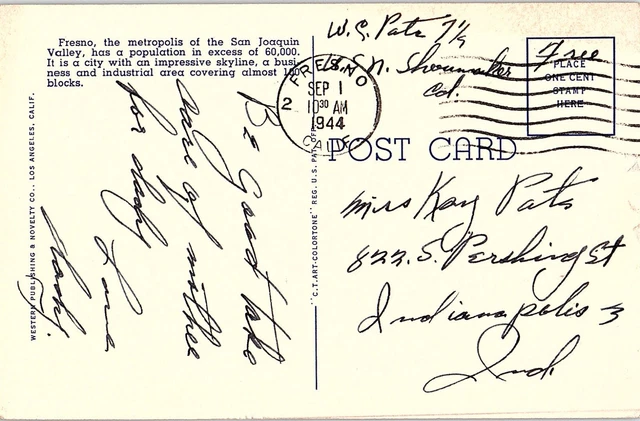 Fresno, the metropolis of the San Joaquin
Valley, has a population in excess of 60,000.
It is a city with an impressive skyline, a busi-
ness and industrial area covering almost 100
blocks.
WESTERN PUBLISHING & NOVELTY CO., LOS ANGELES, CALIF.
Be Good take
care of mother
for
Love
"C.T. ART-COLORTONE" REG. U.S. PAT. OFF.
W.S. Pats
U.S.N.
Cal.
Free
FRESNO
CALIF.
2
SEP 1
10 30 AM
1944
PLACE
ONE CENT
STAMP
HERE
POST CARD
Miss Kay Pats
822 S. Pershing St
Indianapolis 3
Ind.